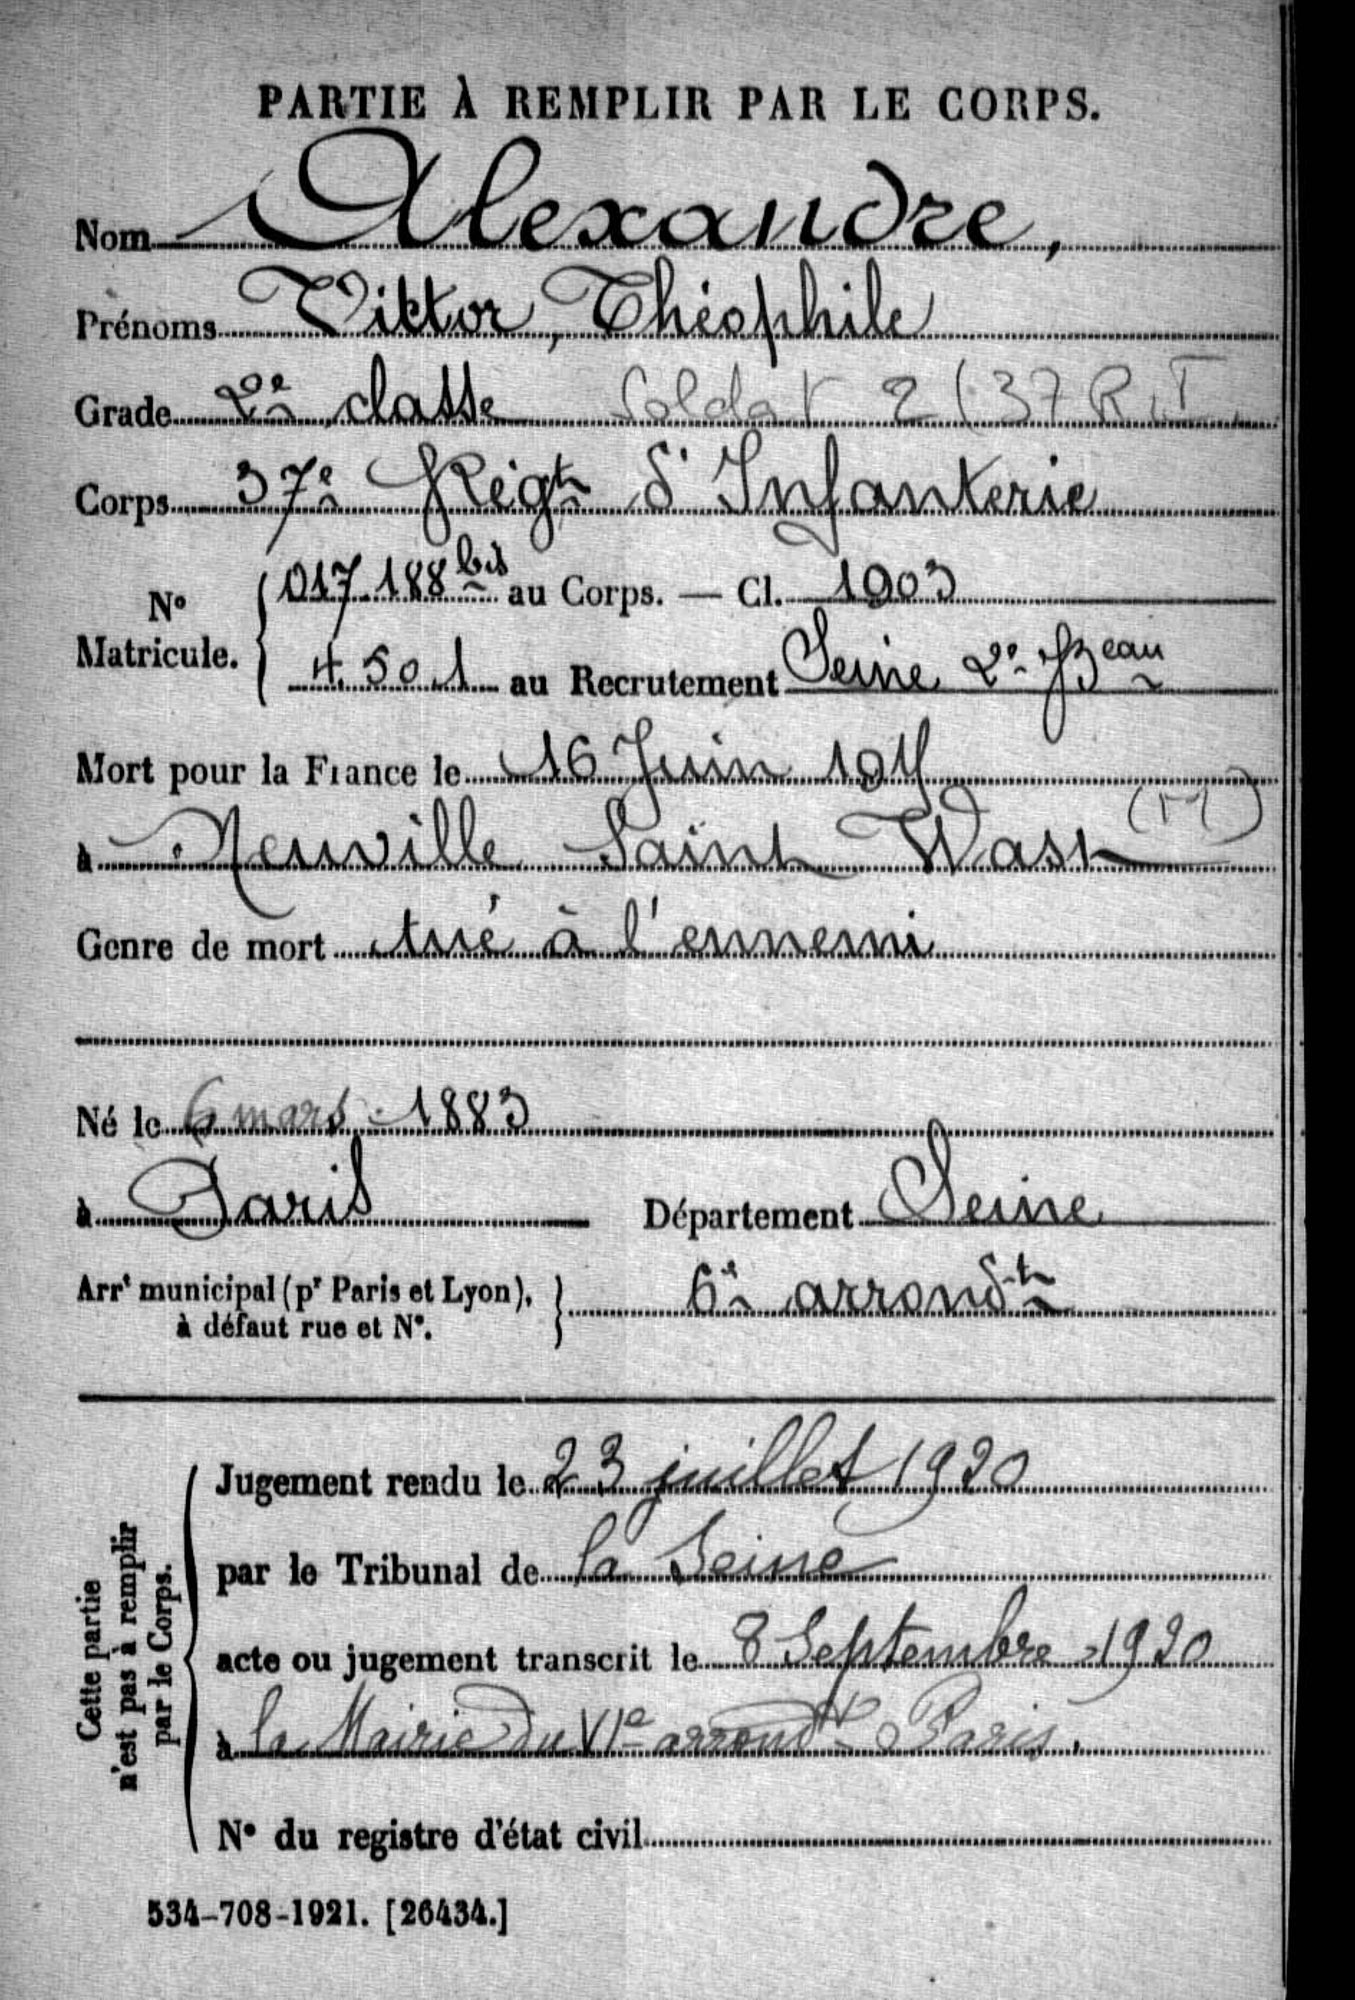 PARTIE À REMPLIR PAR LE CORPS.
Nom Alexandre,
Prénoms Victor, Théophile
Grade 2e classe Soldat 2 (37 R.I.
Corps 37e Régt d'Infanterie
No Matricule. { 017.188 bis au Corps. — Cl. 1903
4.501 au Recrutement Seine 2e Beau
Mort pour la France le 16 Juin 191
à Neuville Saint Wast (M)
Genre de mort tué à l'ennemi
Né le 6 mars 1883
à Paris Département Seine
Arrt municipal (pr Paris et Lyon), à défaut rue et No. } 6e arrondt
Cette partie n'est pas à remplir par le Corps.
Jugement rendu le 23 juillet 1920
par le Tribunal de la Seine
acte ou jugement transcrit le 8 Septembre 1920
à la Mairie du VIe arrondt Paris.
No du registre d'état civil
534-708-1921. [26434.]